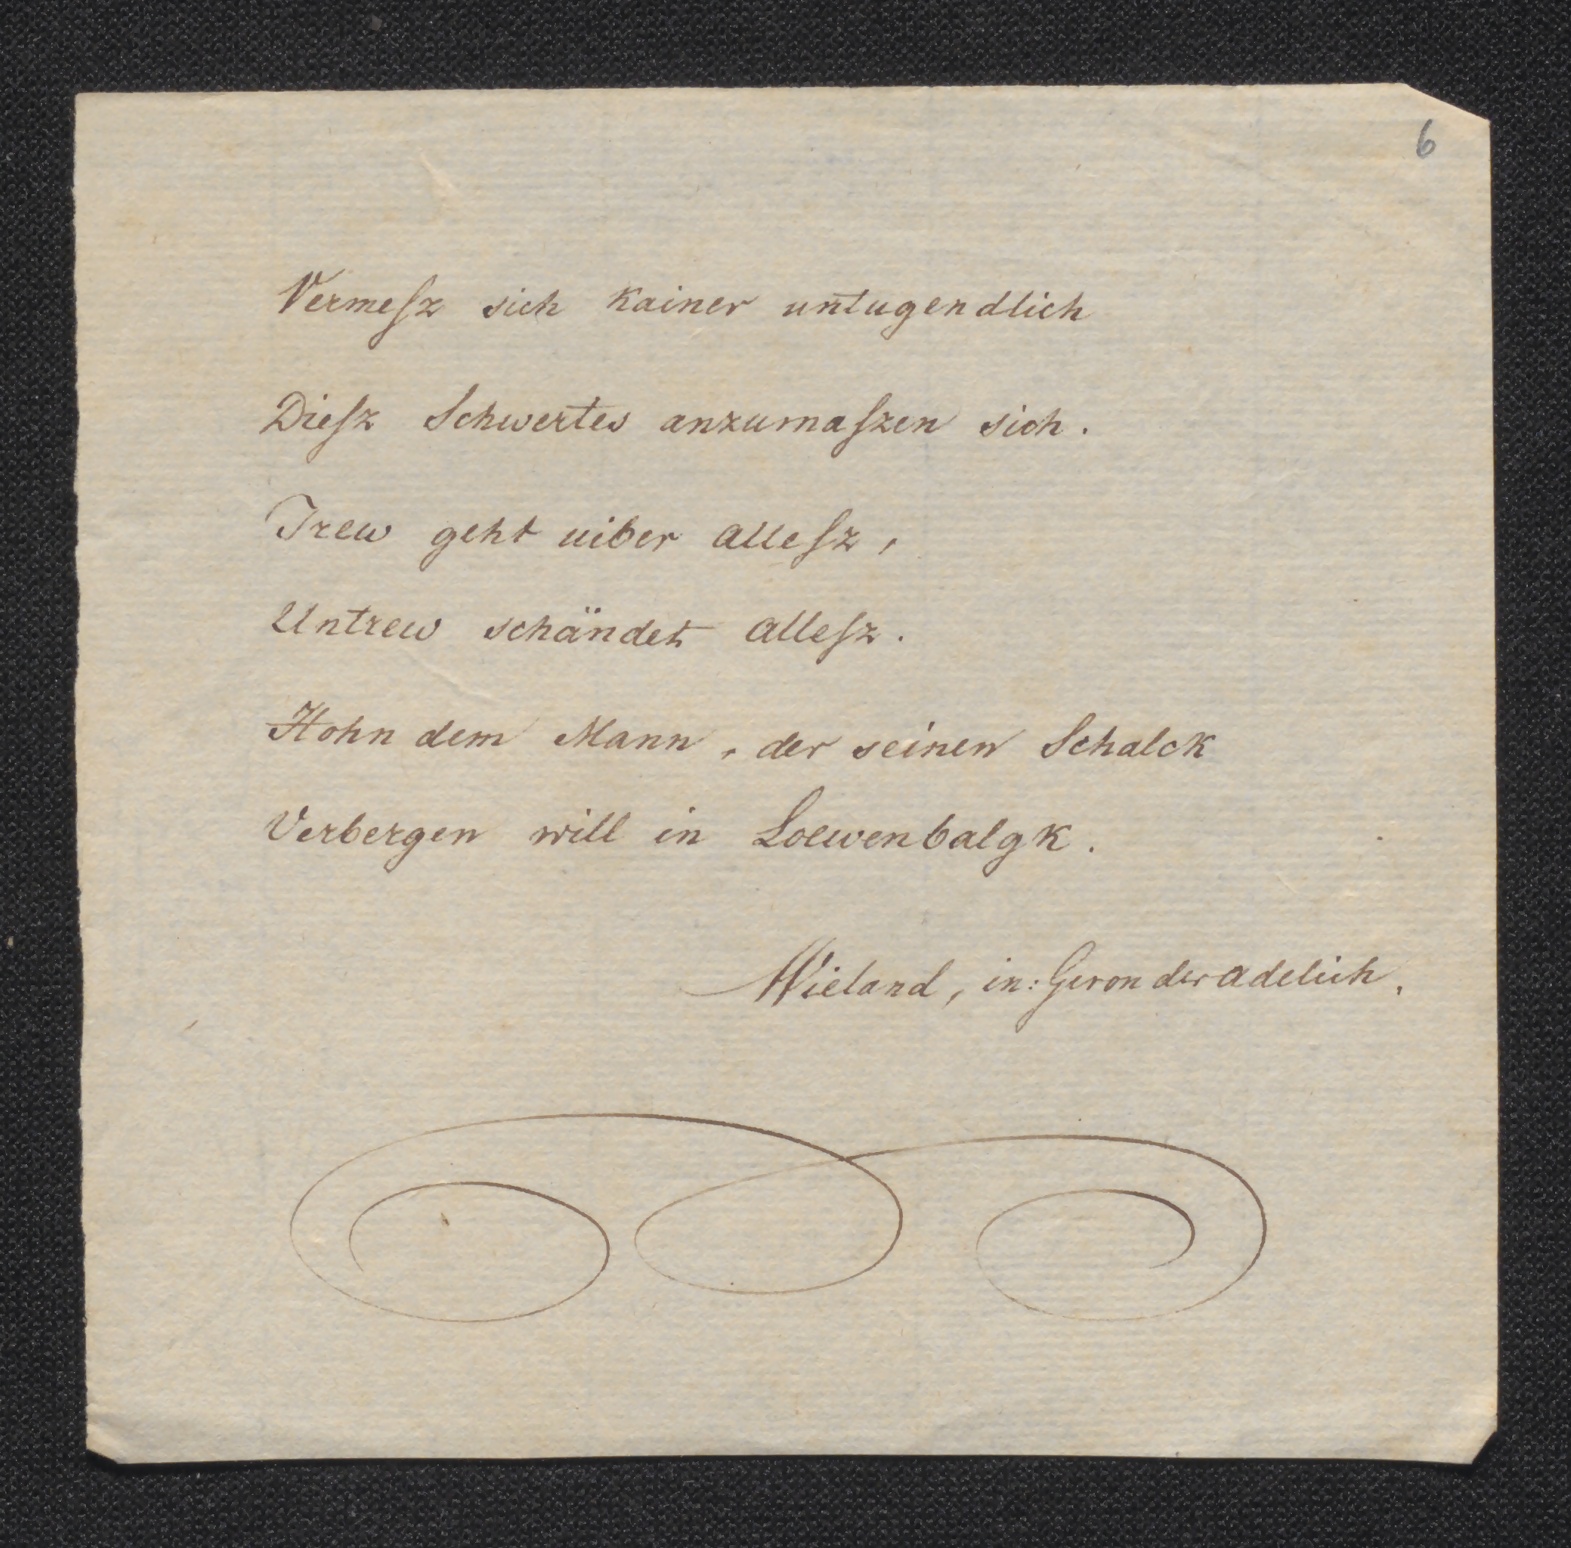 6
Vermeſz sich Kainer untugendlich
Dieſz Schwertes anzumaſzen sich.
Trew geht uiber alleſz,
Untrew schändet alleſz.
Hohn dem Mann, der seinen Schalck
Verbergen will in Loewenbalgk.
Wieland, in: Geron der adelich.